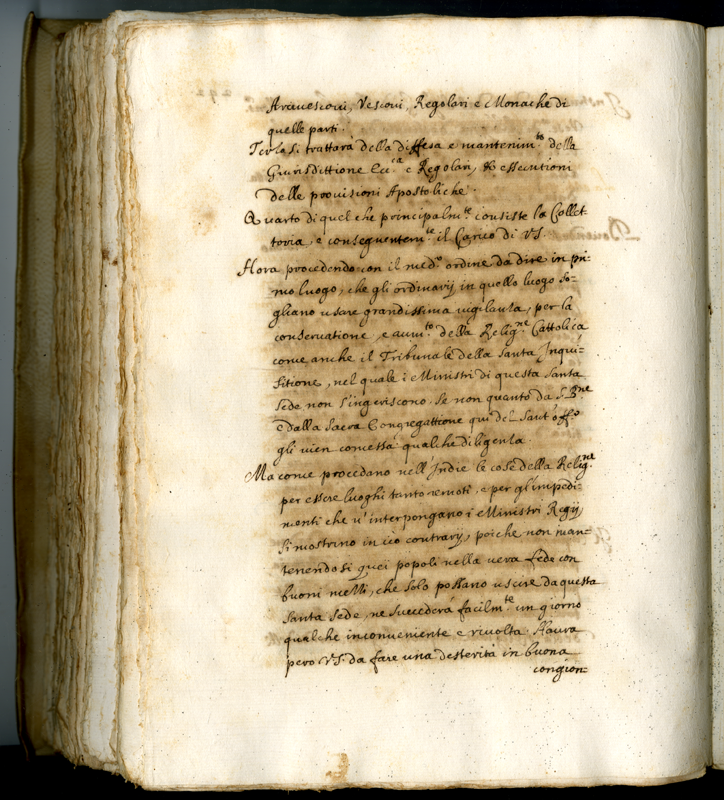 Arciuescoui, Vescoui, Regolari e Monache di
quelle parti.
Terzo si trattarà della diffesa e mantenim.to della
Giurisdittione Ecc.ca e Regolari, & essecutioni
delle prouisioni Apostoliche.
Quarto di quel che principalm.te consiste la Collet-
toria, e conseguentem.te il Carico di VS.
Hora procedendo con il med.o ordine da dire in pri-
mo luogo, che gli ordinarij in quello luogo so-
gliano usare grandissima vigilanza, per la
conseruatione, e aum.to della Relig.ne Cattolica
come anche il Tribunale della Santa Inqui-
sitione, nel quale i Ministri di questa Santa
Sede non s'ingeriscono, se non quanto da S. B.ne
e dalla Sacra Congregattione qui del Sant'off.o
gli vien concessa qualche diligenza.
Ma come procedano nell'Indie le cose della Relig.ne
per essere luoghi tanto remoti, e per gl'impedi-
menti che u'interpongano i Ministri Regij,
si mostrino in ciò contrarij, poiche non man-
tenendosi quei popoli nella uera fede con
buoni mezzi, che solo possano uscire da questa
Santa Sede, ne succederà facilm.te un giorno
qualche inconueniente e riuolta. Haurà
però VS. da fare una desterità in buona
congion-